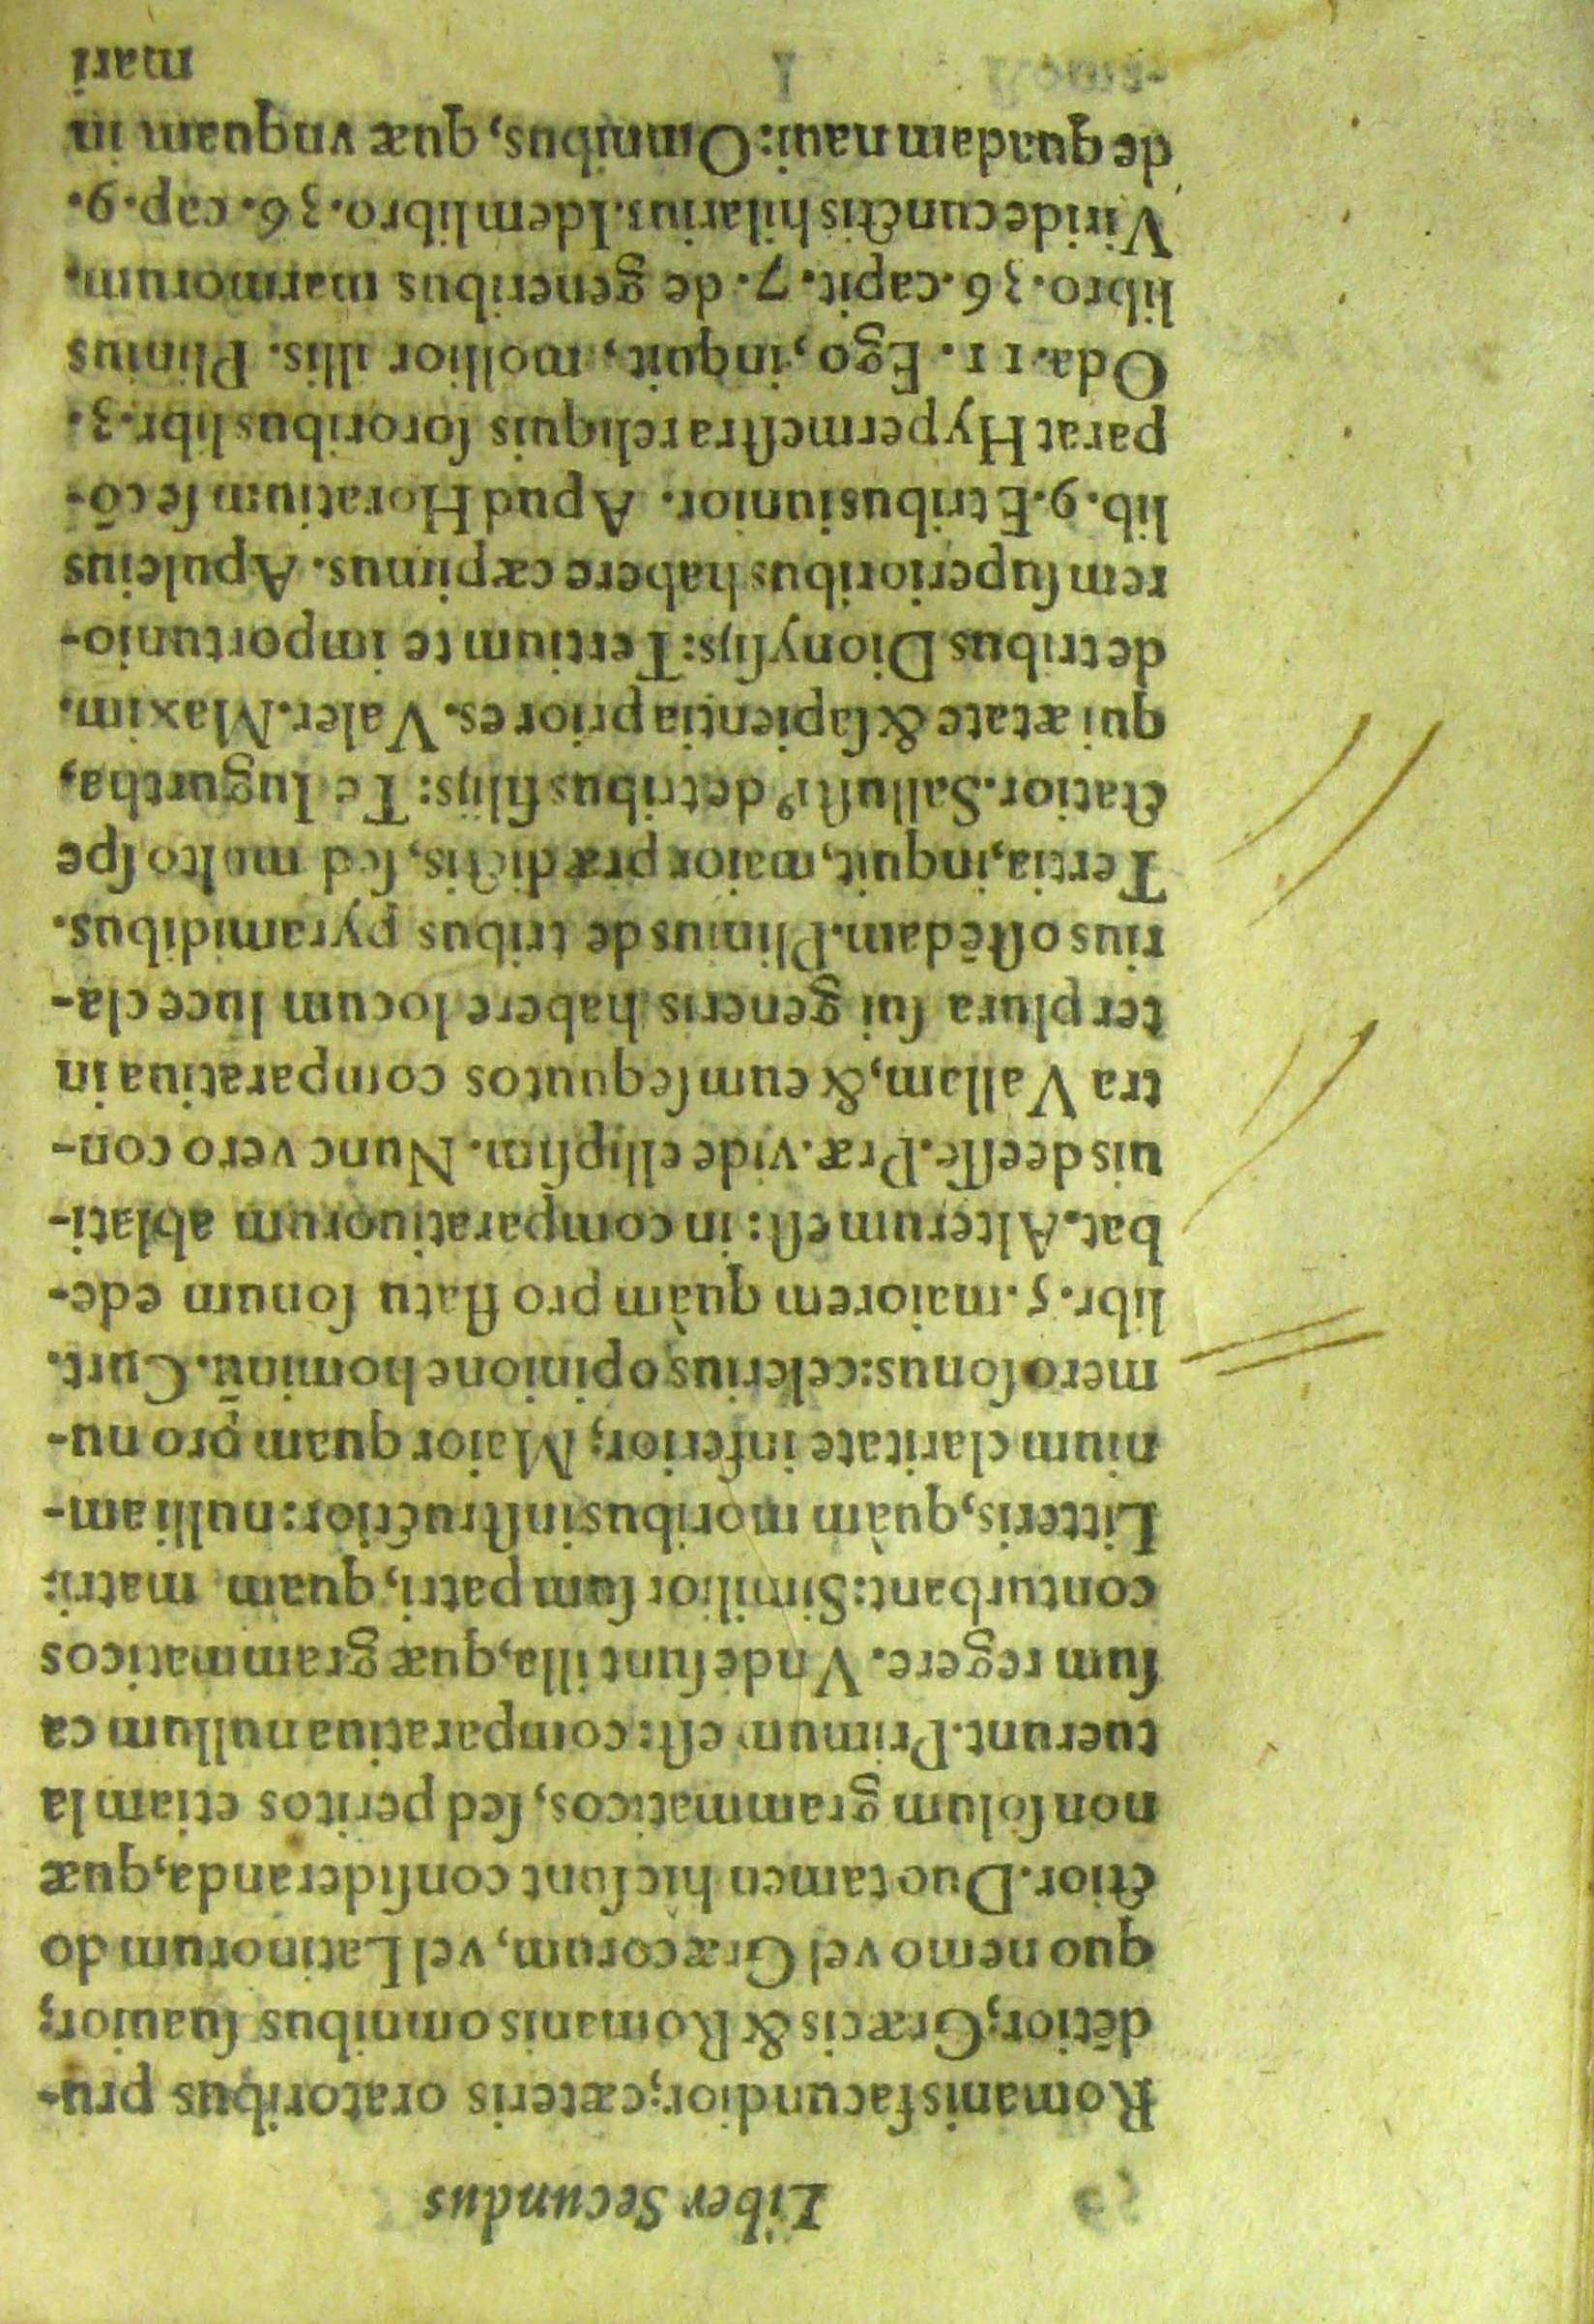 Liber Secundus
Romanis facundior; cæteris oratoribus pru-
dētior; Græcis & Romanis omnibus ſuauior;
quo nemo vel Græcorum, vel Latinorum do
ctior. Duo tamen hic ſunt conſideranda, quæ
non ſolum grammaticos, ſed peritos etiam la
tuerunt. Primum eſt: comparatiua nullum ca
ſum regere. Vnde ſunt illa, quæ grammaticos
conturbant: Similior ſum patri, quam matri:
Litteris, quàm moribus inſtructior: nulli am-
nium claritate inferior; Maior quam pro nu-
mero ſonus: celerius opinione hominū. Curt.
libr. 5. maiorem quàm pro flatu ſonum ede-
bat. Alterum eſt: in comparatiuorum ablati-
uis deeſſe. Præ. vide ellipſim. Nunc vero con-
tra Vallam, & eum ſequutos comparatiua in
ter plura ſui generis habere locum luce cla-
rius oſtēdam. Plinius de tribus pyramidibus.
Tertia, inquit, maior prædictis, ſed multo ſpe
ctatior. Salluſtiꝰ de tribus filijs: Te Iugurtha,
qui ætate & ſapientia priores. Valer. Maxim.
de tribus Dionyſijs: Tertium te importunio-
rem ſuperioribus habere cœpimus. Apuleius
lib. 9. E tribus iunior. Apud Horatium ſe cō-
parat Hypermeſtra reliquis ſororibus libr. 3.
Oda. 11. Ego, inquit, mollior illis. Plinius
libro. 36. capit. 7. de generibus marmorum.
Viride cunctis hilarius. Idem libro. 36. cap. 9.
de quadam naui: Omnibus, quæ vnquam in
mari